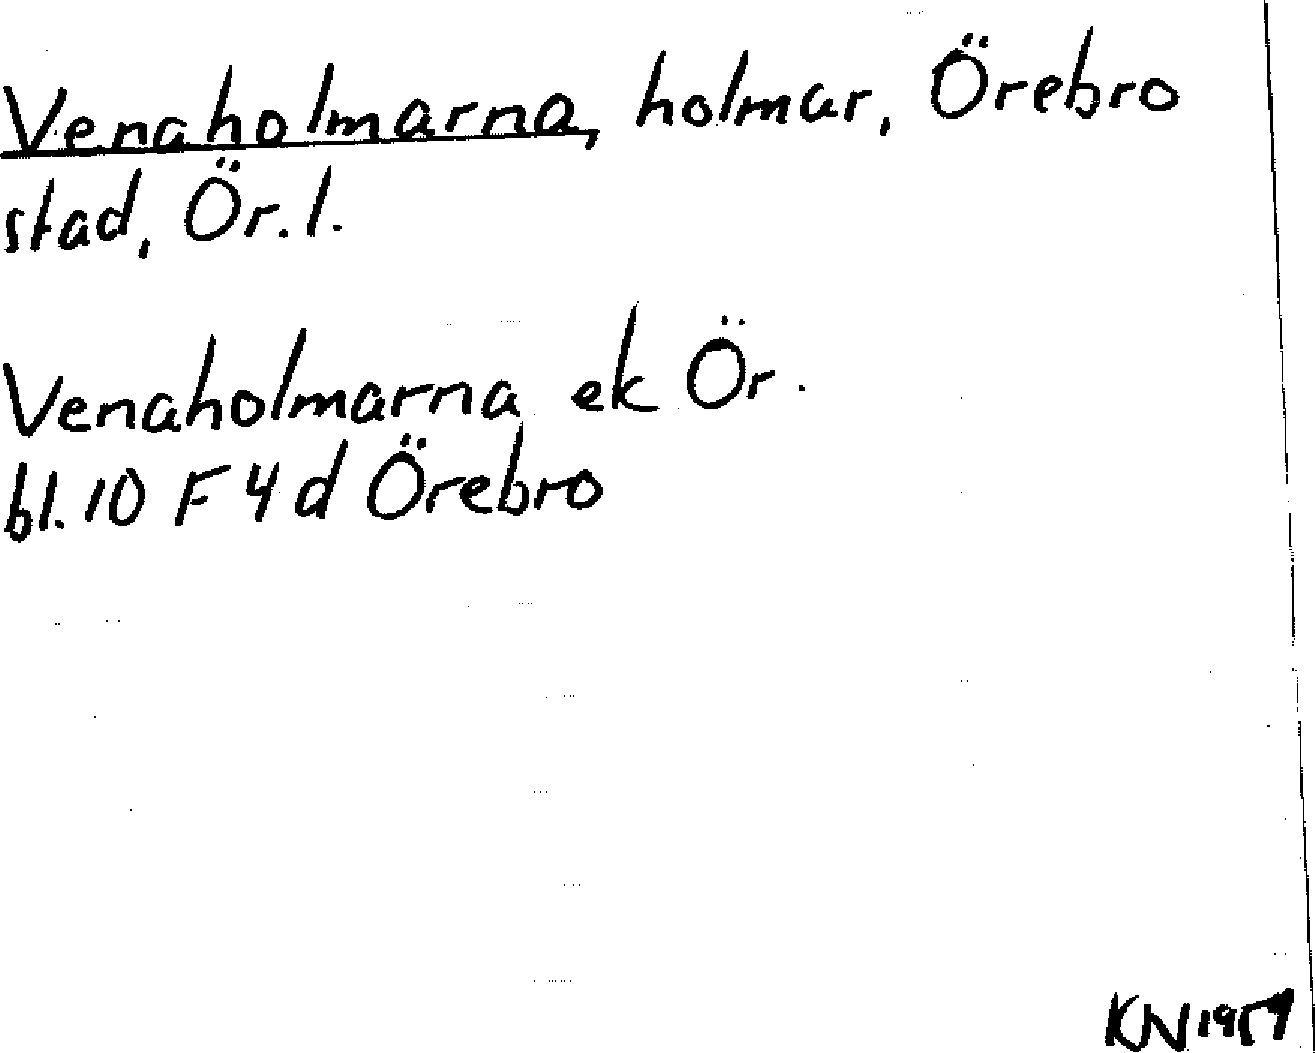 Venaholmarna, holmar, Örebro
stad, Ör. l.
Venaholmarna ek Ör.
bl. 10 F 4 d Örebro
KN